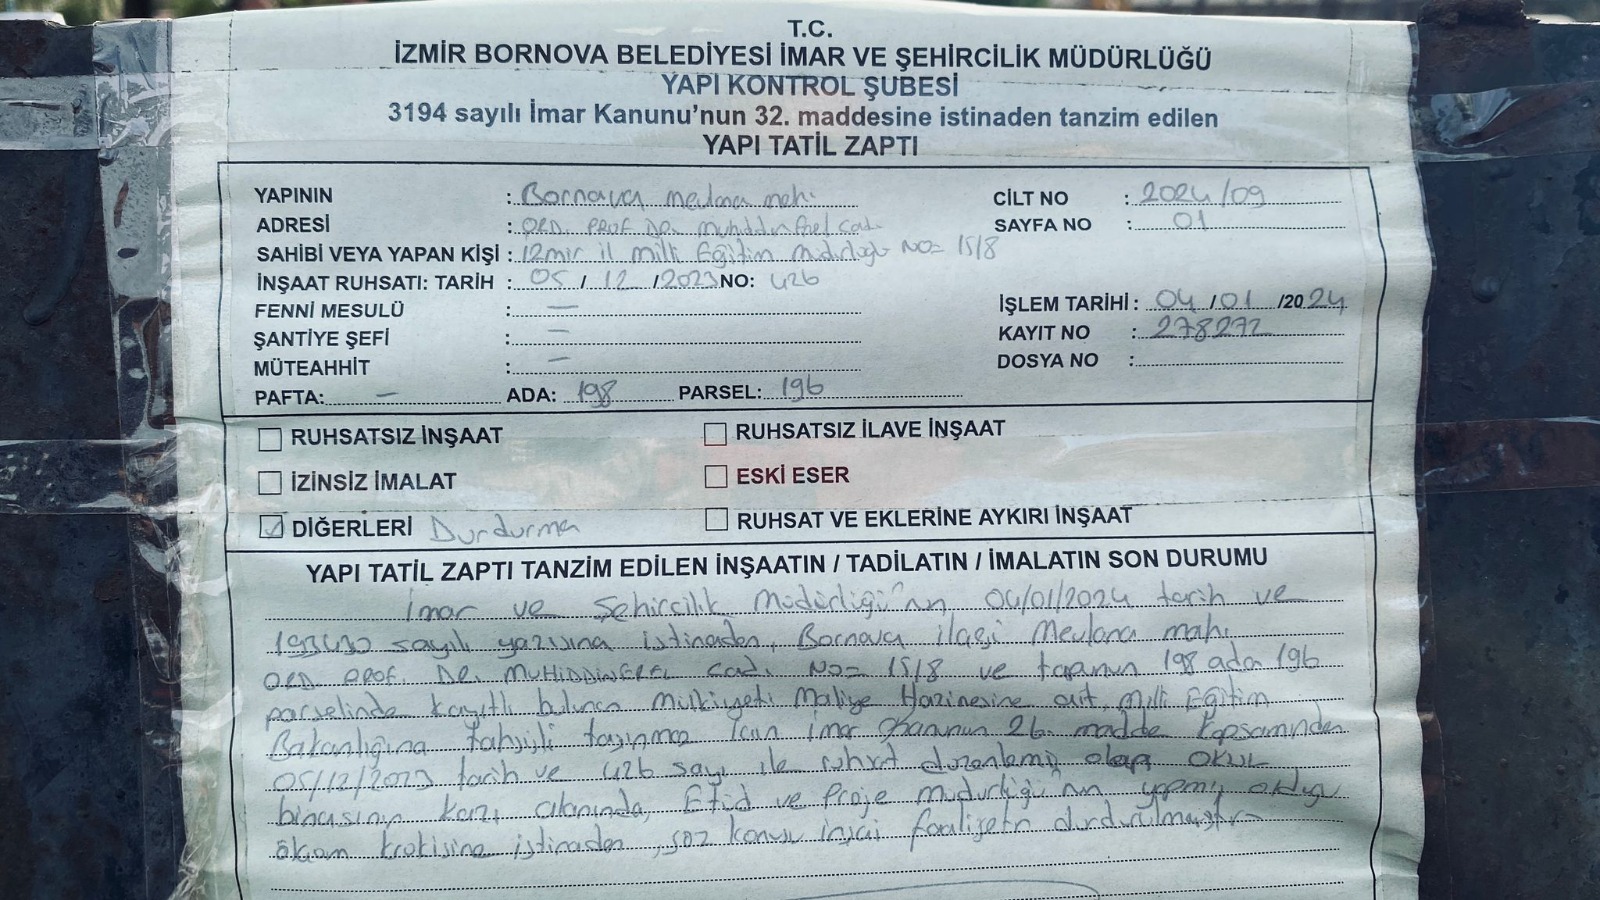 T.C.
İZMİR BORNOVA BELEDİYESİ İMAR VE ŞEHİRCİLİK MÜDÜRLÜĞÜ
YAPI KONTROL ŞUBESİ
3194 sayılı İmar Kanunu'nun 32. maddesine istinaden tanzim edilen
YAPI TATİL ZAPTI
YAPININ : Bornova mevlana mah. CİLT NO : 2024/09
ADRESİ : ORD. PROF. DR. Muhiddin Erel Cad. SAYFA NO : 01
SAHİBİ VEYA YAPAN KİŞİ : İzmir il milli Eğitim Müdürlüğü NO= 15/8
İNŞAAT RUHSATI: TARİH : 05 / 12 / 2023 NO: 426
FENNİ MESULÜ : — İŞLEM TARİHİ : 04 / 01 /20 24
ŞANTİYE ŞEFİ : — KAYIT NO : 278272
MÜTEAHHİT : — DOSYA NO :
PAFTA: — ADA: 198 PARSEL: 196
RUHSATSIZ İNŞAAT RUHSATSIZ İLAVE İNŞAAT
İZİNSİZ İMALAT ESKİ ESER
DİĞERLERİ Durdurma RUHSAT VE EKLERİNE AYKIRI İNŞAAT
YAPI TATİL ZAPTI TANZİM EDİLEN İNŞAATIN / TADİLATIN / İMALATIN SON DURUMU
İmar ve Şehircilik Müdürlüğü'nün, 04/01/2024 tarih ve
sayılı yazısına istinaden, Bornova ilçesi Mevlana mah.
ORD. PROF. DR. MUHİDDİN EREL Cad. NO= 15/8 ve tapunun 198 ada 196
parselinde kayıtlı bulunan mülkiyeti Maliye Hazinesine ait, Milli Eğitim
Bakanlığına tahsisli taşınmaz için imar Kanunun 26. madde kapsamından
05/12/2023 tarih ve 426 sayı ile ruhsat düzenlemiş olan OKUL
binasının kazı alanında, Etüd ve Proje Müdürlüğü'nün yapmış olduğu
ölçüm krokisine istinaden, söz konusu inşai faaliyetin durdurulmuştur